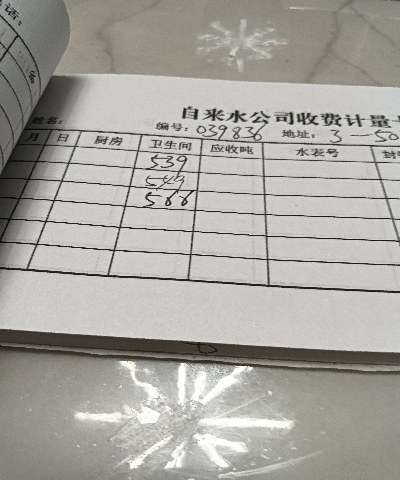 自来水公司收费计量卡
姓名: 编号: 039836 地址: 3-50
月 日 厨房 卫生间 应收吨 水表号 封
539
549
566